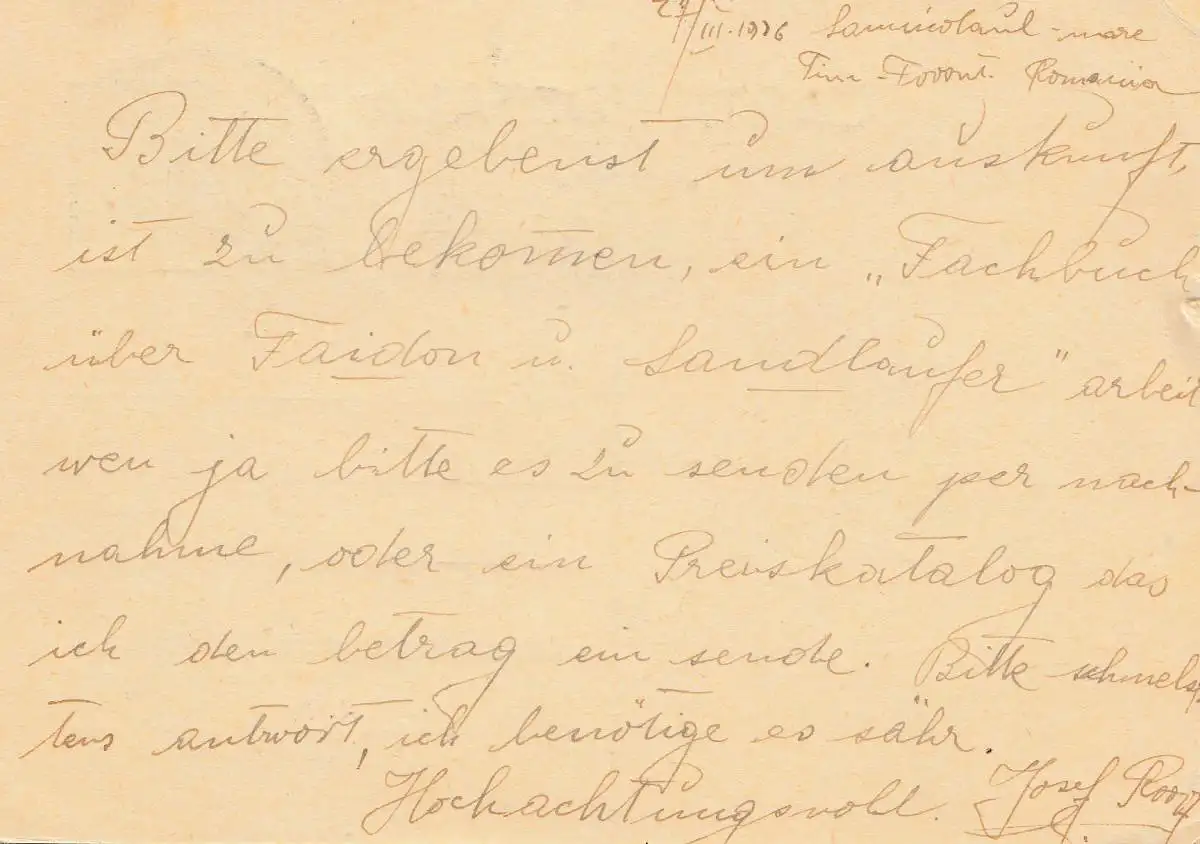 27/III. 1926 Sannicolaul-mare
Tim-Toront. Romania
Bitte ergebenst um auskunft,
ist zu bekom̅en, ein „Fachbuch
über Faidon u. Sandlaufer" arbeit
wen ja bitte es zu senden per nach-
nahme, oder ein Preiskatalog das
ich den betrag ein sende. Bitte schnels
tens antwort, ich benötige es sähr.
Hochachtungsvohl. Josef